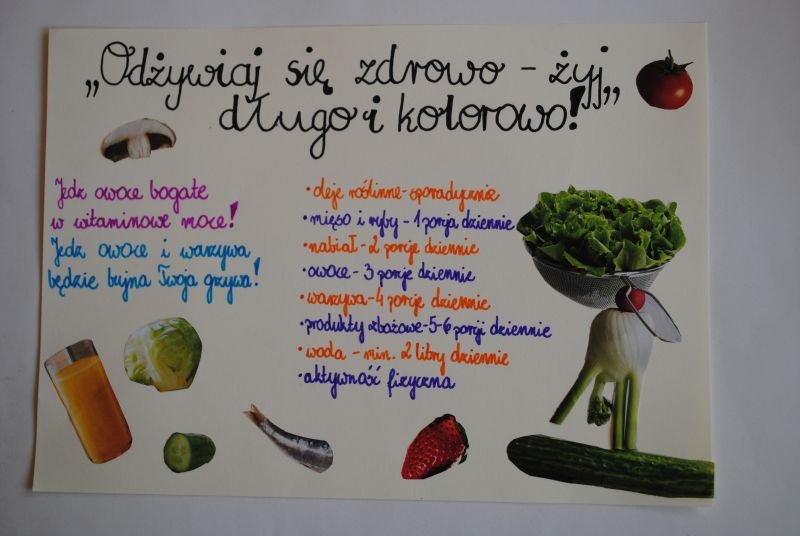 „Odżywiaj się zdrowo - żyj
długo i kolorowo!”
Jedz owoce bogate
w witaminowe moce!
Jedz owoce i warzywa
będzie bujna Twoja grzywa!
• oleje roślinne - sporadycznie
• mięso i ryby - 1 porcja dziennie
• nabiał - 2 porcje dziennie
• owoce - 3 porcje dziennie
• warzywa - 4 porcje dziennie
• produkty zbożowe - 5-6 porcji dziennie
• woda - min. 2 litry dziennie
• aktywność fizyczna